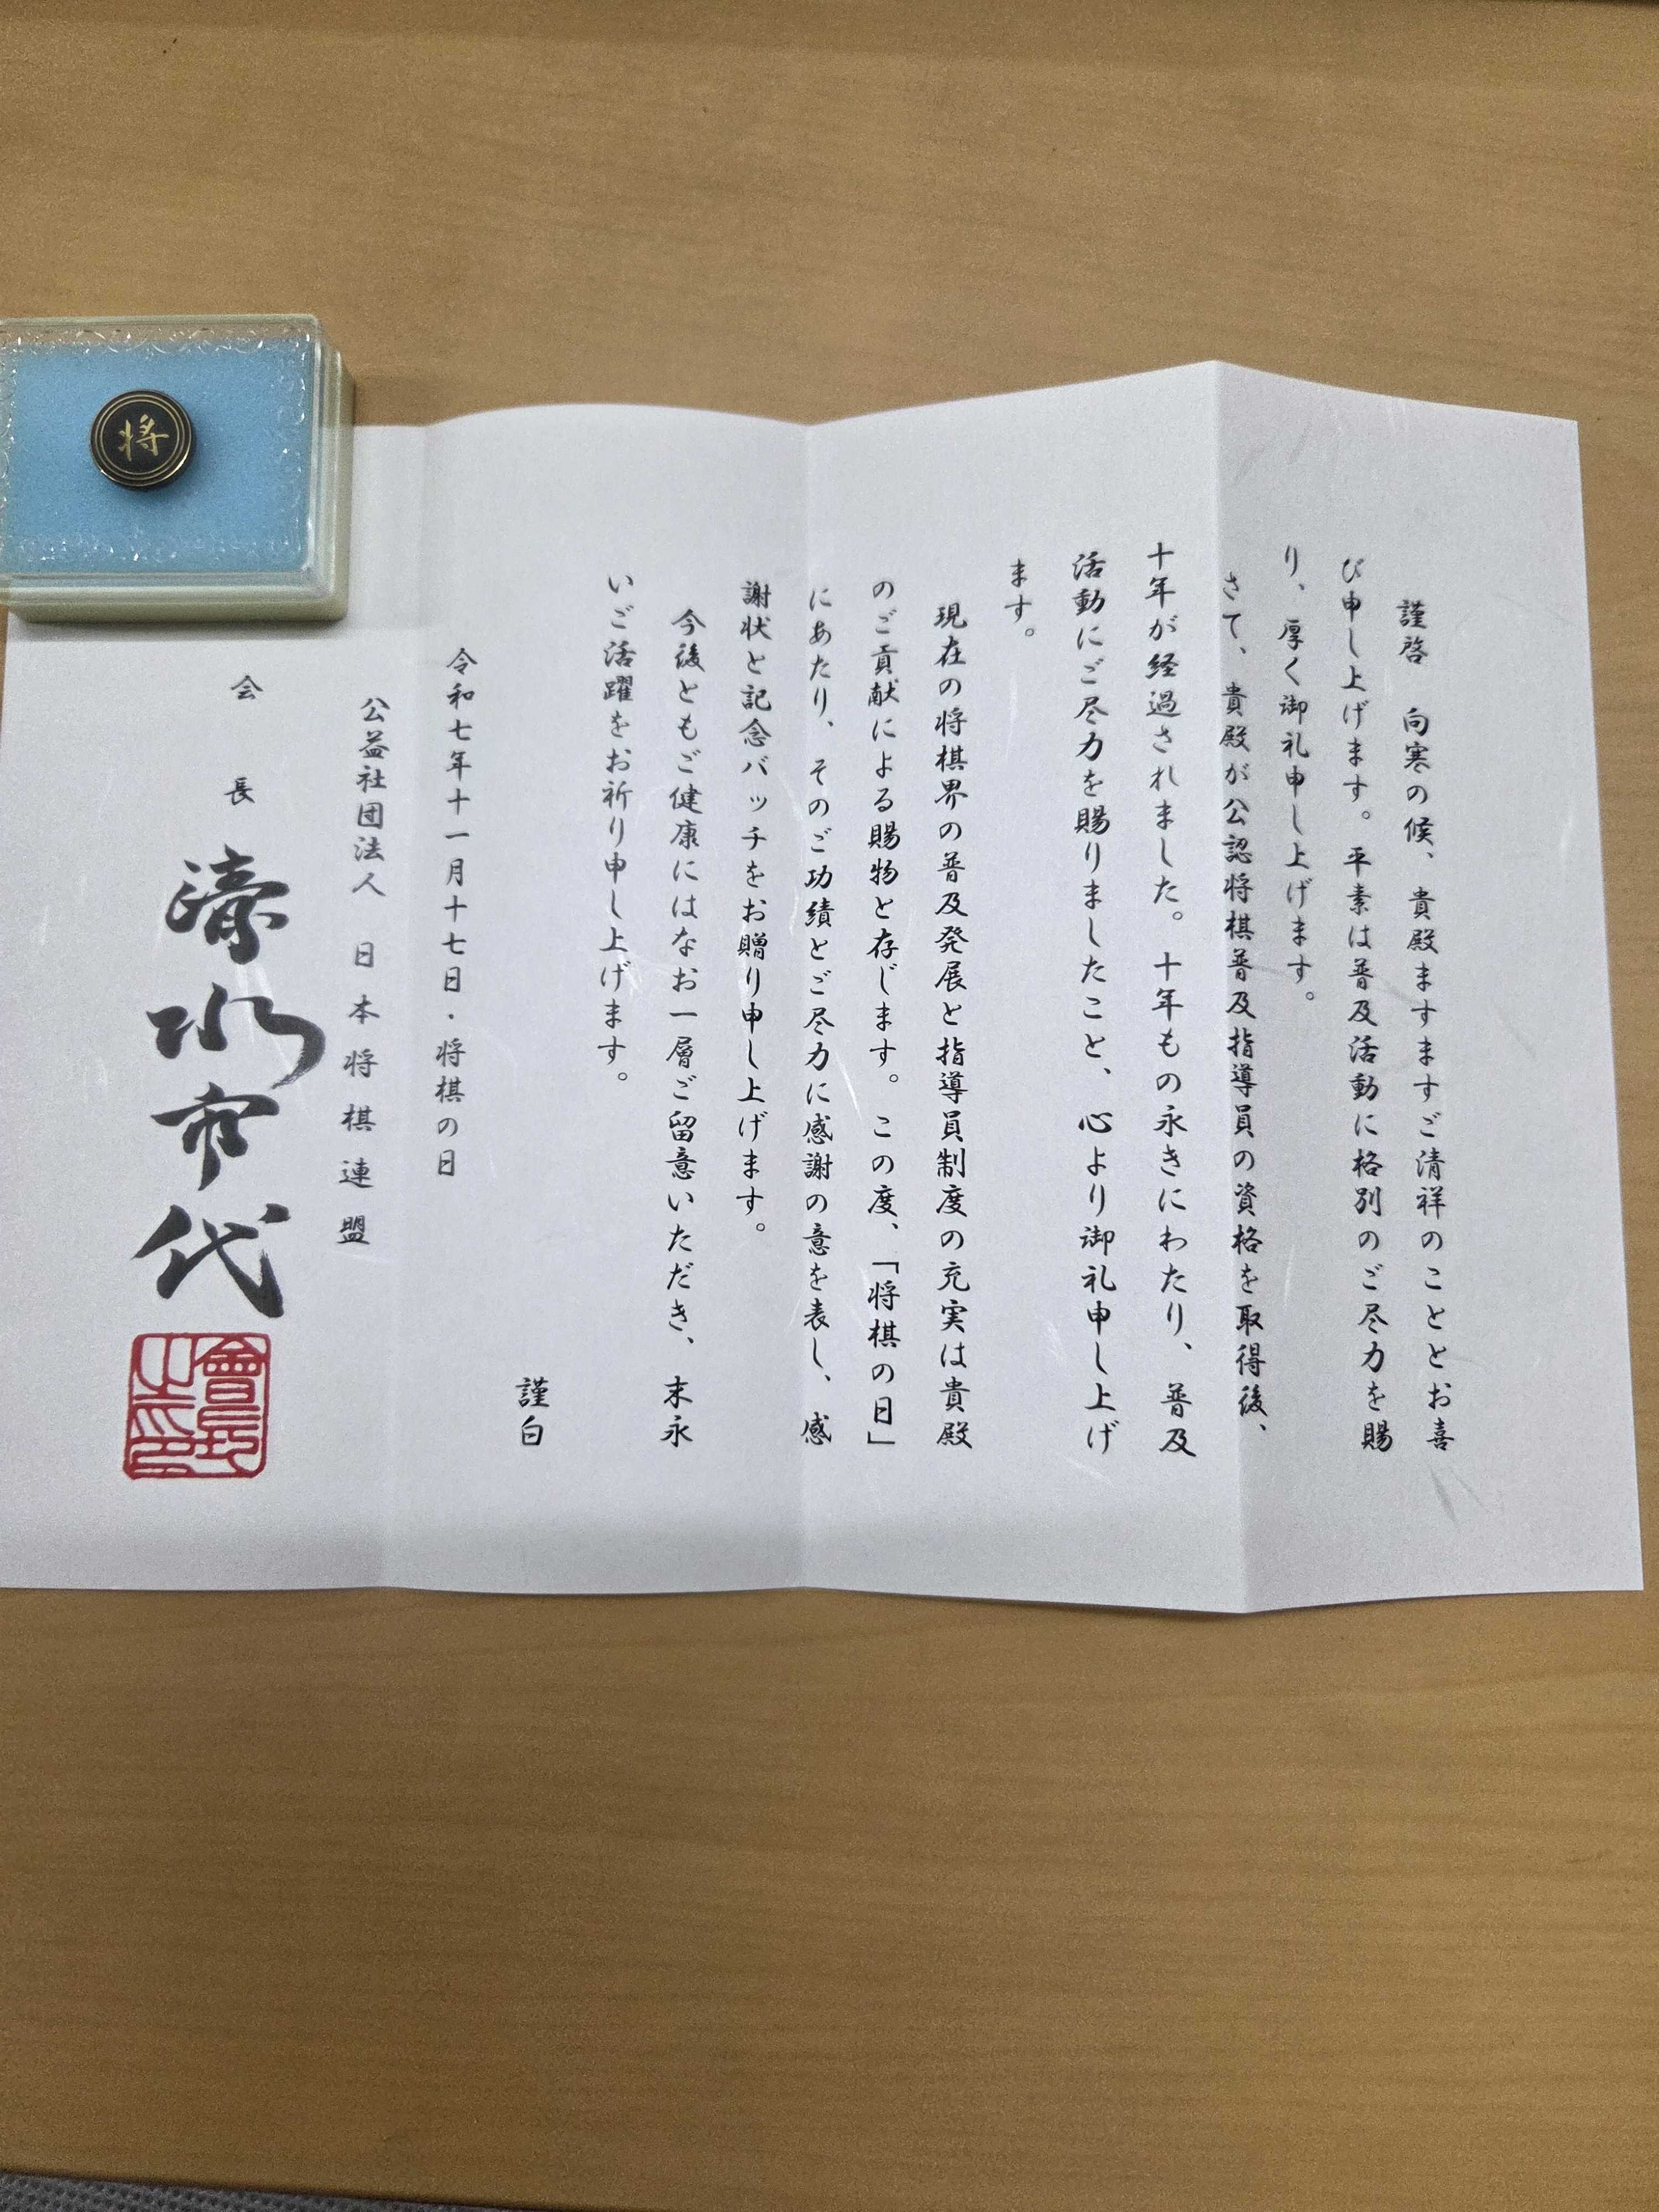 謹啓　向寒の候、貴殿ますますご清祥のこととお喜
び申し上げます。平素は普及活動に格別のご尽力を賜
り、厚く御礼申し上げます。
さて、貴殿が公認将棋普及指導員の資格を取得後、
十年が経過されました。十年もの永きにわたり、普及
活動にご尽力を賜りましたこと、心より御礼申し上げ
ます。
現在の将棋界の普及発展と指導員制度の充実は貴殿
のご貢献による賜物と存じます。この度、「将棋の日」
にあたり、そのご功績とご尽力に感謝の意を表し、感
謝状と記念バッチをお贈り申し上げます。
今後ともご健康にはなお一層ご留意いただき、末永
いご活躍をお祈り申し上げます。
謹白
令和七年十一月十七日・将棋の日
公益社団法人　日本将棋連盟
会長　清水市代
會長之印
将